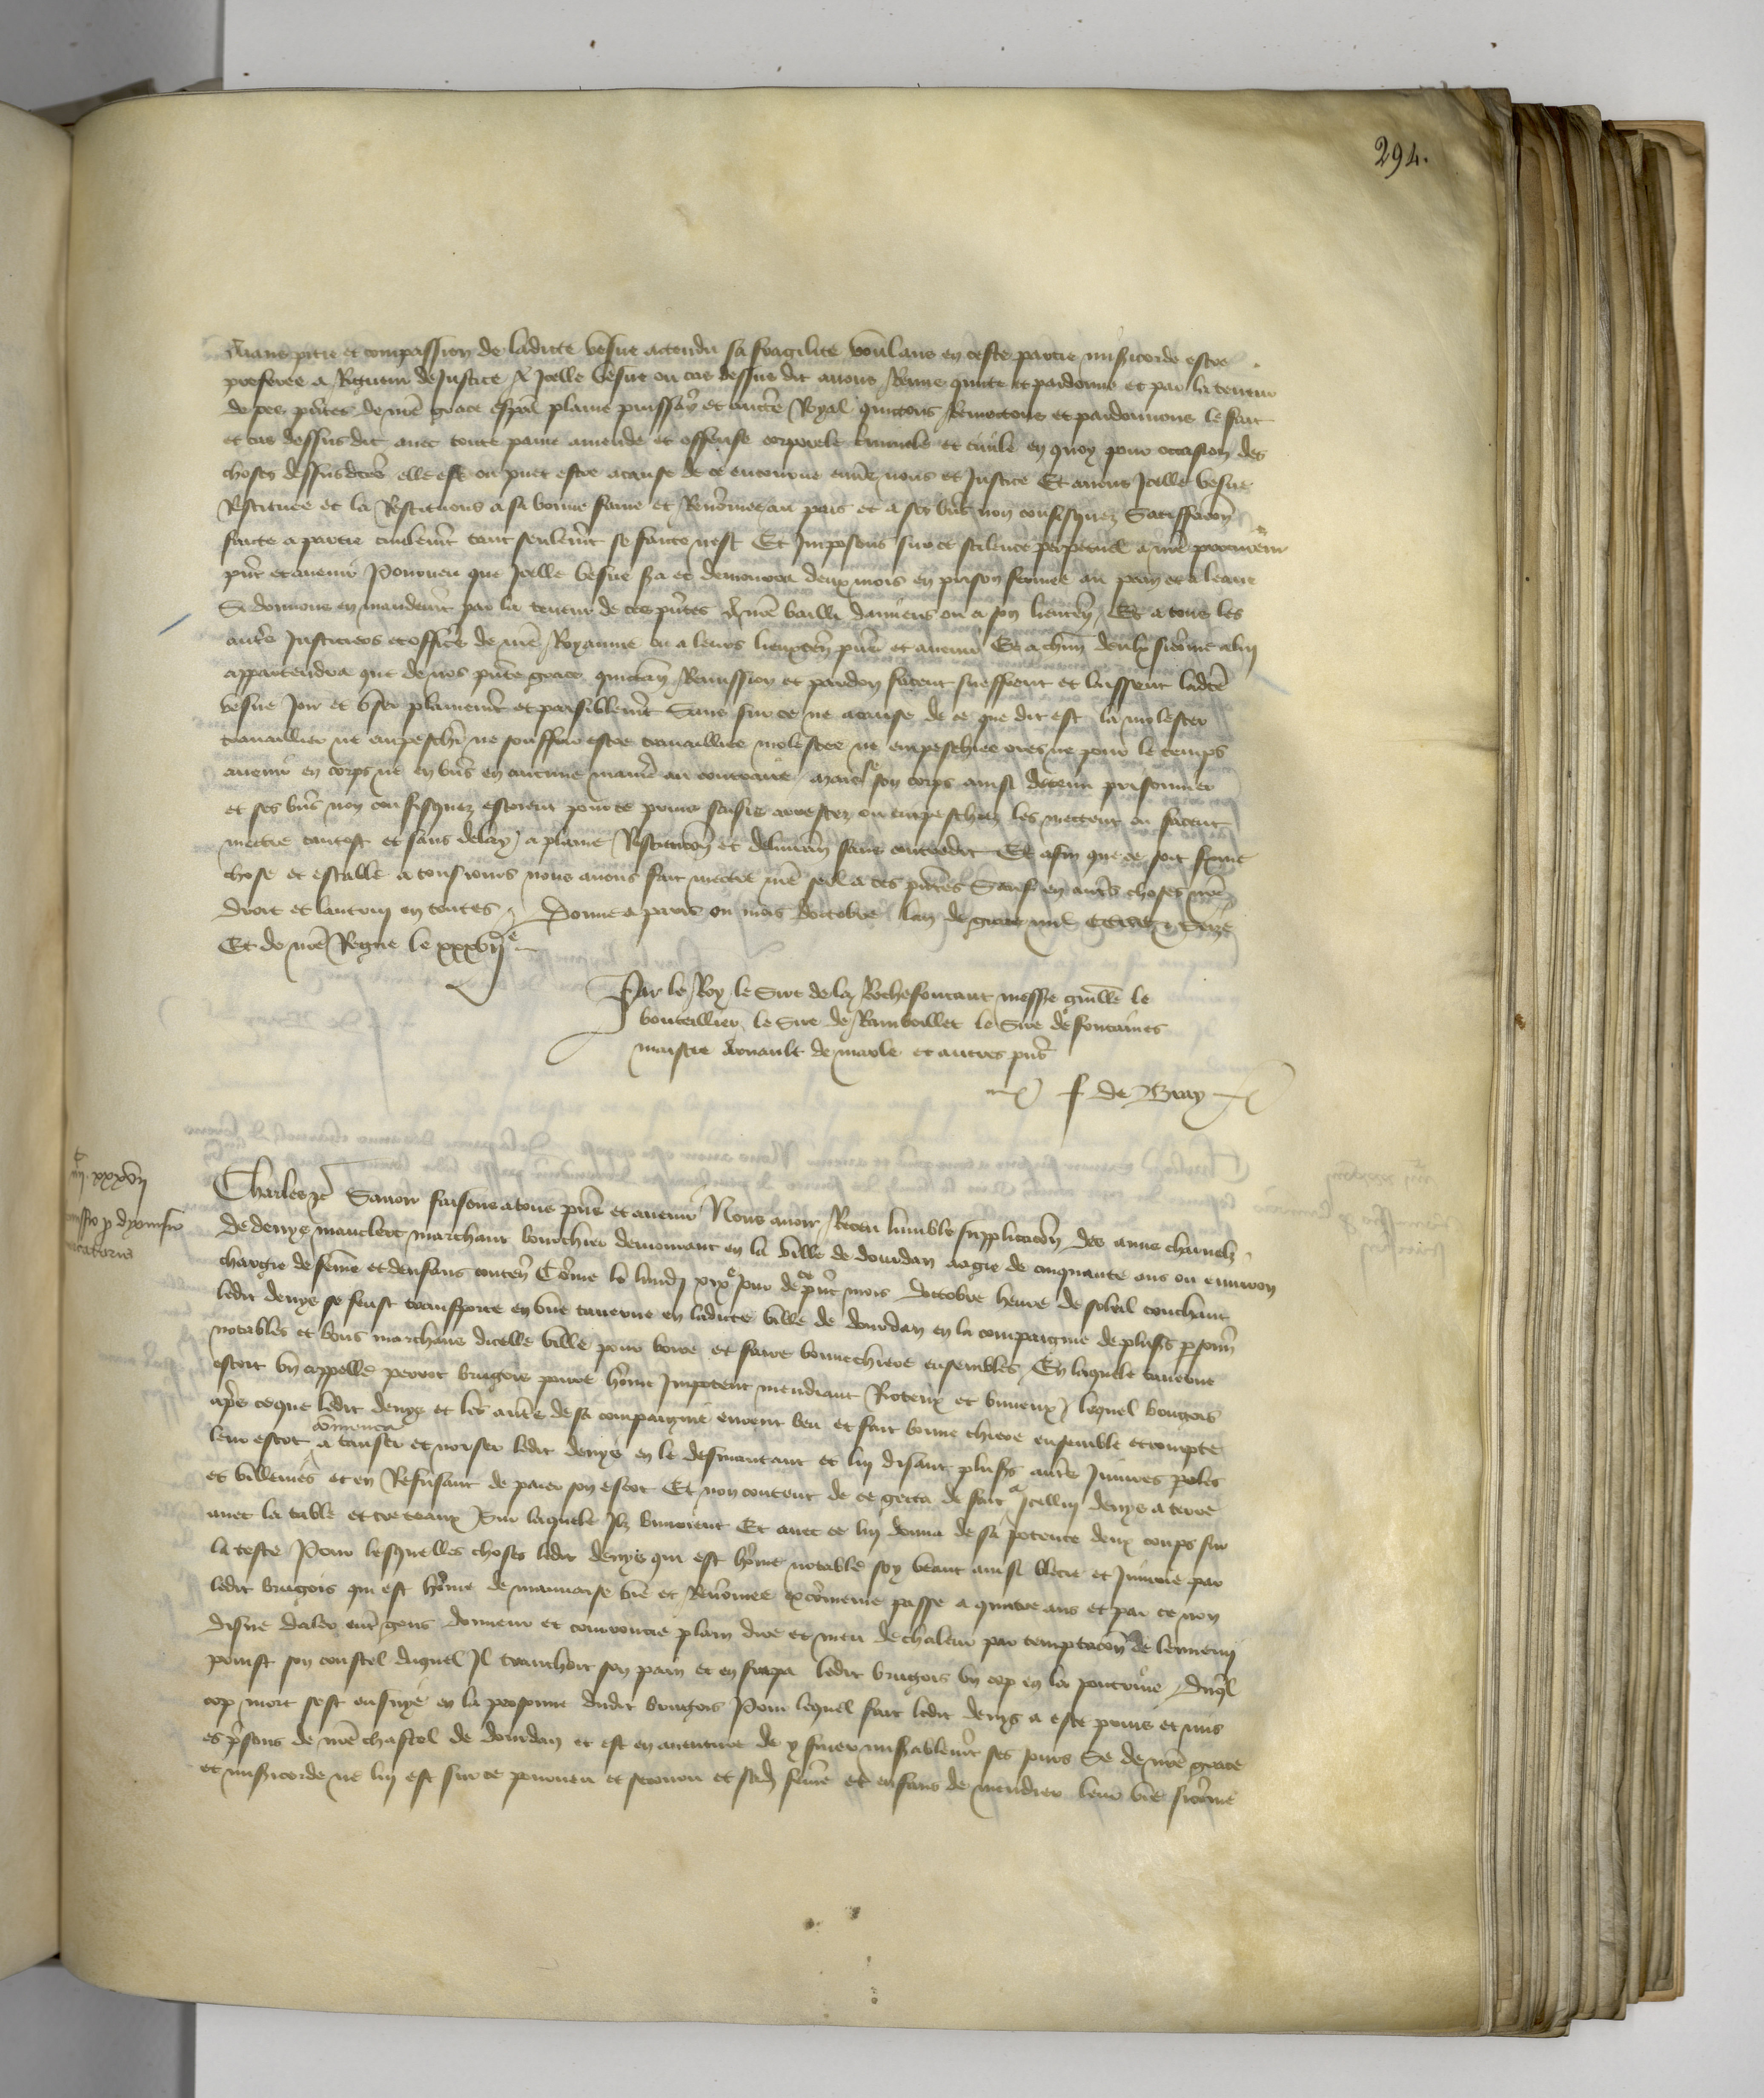 294.
aiant pitie et compassion de ladicte vesue attendu sa fragilite voulans en ceste partie misericorde estre
preferee a Rigueur de Justice A Icelle vesue ou cas dessus dit auons Remis quicte et pardonne et par la teneur
de ces pntes de nre grace espal plaine puissance et aucte Royal quictons Remectons et pardonnons le fait
et cas dessusdit auec toute paine amende et offense corporele criminele et ciuile en quoy pour occasion des
choses dessusdictes elle est ou puet estre a cause de ce encourue enuers nous et Justice Et auons Icelle vesue
Restituee et la Restituons a sa bonne fame et Renommee au pais et a ses biens non confisquez Satisfaccion
faicte a partie ciuilement tant seulement se faicte nest Et Imposons sur ce scilence perpetuel a nre procureur
pnt et auenir Pourueu que Icelle vesue sera et demourra deux mois en prison fermee au pain et a leaue
Si donnons en mandement par la teneur de ces pntes A nre bailli damiens ou a son lieuten Et a tous les
autres Justiciers et officiers de nre Royaume ou a leurs lieuxten pns et auenir Et a chun deulx sicomme a luy
appartendra que de nos pnte grace quictance Remission et pardon facent sueffrent et laissent ladicte
vesue Joir et vser plainement et paisiblement Sans sur ce ne a cause de ce que dit est la molester
trauaillier ne empeschier ne souffrir estre trauaillee molestee ne empeschiee ores ne pour le temps
auenir en corps ne en biens en aucune maniere au contraire mais se son corps ainsi detenu prisonnier
et ses biens non confisquez estoient pour ce prins saisis arrestez ou empeschiez les mectent ou facent
mectre tantost et sans delay a plaine Restitucion et deliurance sans contredit Et afin que ce soit ferme
chose et estable a tousiours nous auons fait mectre nre seel a ces pntes Sauf en autres choses nre
droit et lautruy en toutes Donne a paris ou mois doctobre lan de grace mil CCCC et Seize
Et de nre Regne le xxxvije
Par le Roy le Sire de la Rochefoucaut messire guille le
bouteillier le Sire de Rambouillet le Sire de fontaines
maistre arnault de marle et autres pns
f de Bray
ijc xxxvij
Remissio p dyonisio
mercatoris
Charles etc Sauoir faisons a tous pns et auenir Nous auoir Receu lumble supplicacion des amis charnelz
de denys mauclerc marchant bouchier demourant en la ville de dourdan aagie de cinquante ans ou enuiron
chargie de femme et denfans conten Comme le lundi xixe Jour de ce pnt mois doctobre heure de soleil couchant
ledit denys se feust transporte en vne tauerne en ladicte ville de dourdan en la compaignie de plusrs personnes
notables et bons marchans dicelle ville pour boire et faire bonne chiere ensembles En laquele tauerne
estoit vn appelle perrot brugois poure homme Impotent mendiant Rioteux et vineux lequel bougois
apres ce que ledit denys et les autres de sa compaignie eurent beu et fait bonne chiere ensemble et compte
leur escot commenca a tanser et noiser ledit denys en le desmantant et luy disant plusrs autres Iniures paroles
et villenies et en Refusant de paier son escot Et non content de ce getta de fait Icellui denys a terre
auec la table et treteaux Sur laquele Ilz buuoient Et auec ce luy donna de sa potence deux coups sur
la teste Pour lesquelles choses ledit denys qui est homme notable soy veant ainsi blecie et Iniurie par
ledit brugois qui est homme de mauuaise vie et Renommee excommenie passe a quatre ans et par ce non
disne daler entre gens donneur et courroucie plain dire et meu de chaleur par temptacion de lennemy
prinst son coustel duquel Il tranchoit son pain et en frapa ledit brugois vn cop en la poictrine Duquel
cop mort sest ensuye en la personne dudit brugois Pour lequel fait ledit denys a este prins et mis
es prisons de nre chastel de dourdan et est en auenture de y finer miserablement ses jours Se de nre grace
et misericorde ne luy est sur ce pourueu et secouru et sadicte femme et enfans de mendier leur vie sicomme